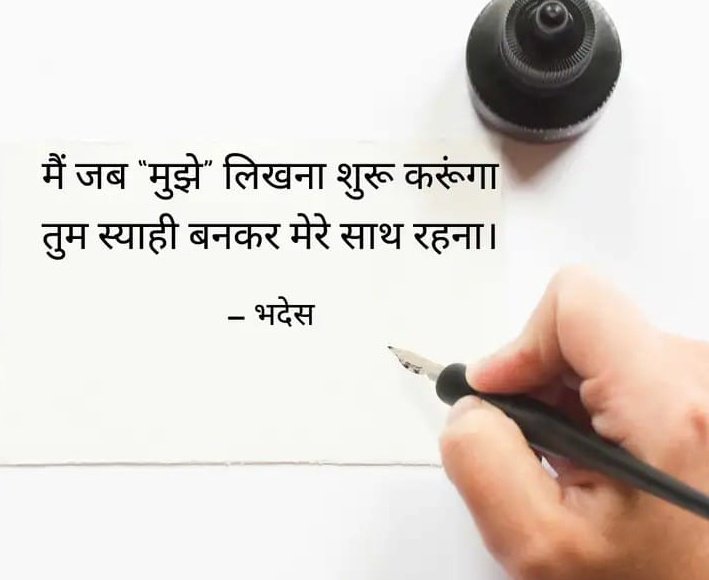 मैं जब “मुझे” लिखना शुरू करूंगा
तुम स्याही बनकर मेरे साथ रहना।
– भदेस